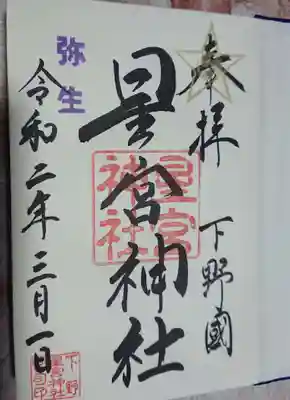 奉拝 下野國
星宮神社
星宮
神社
弥生
令和二年三月一日
下野
星宮神社